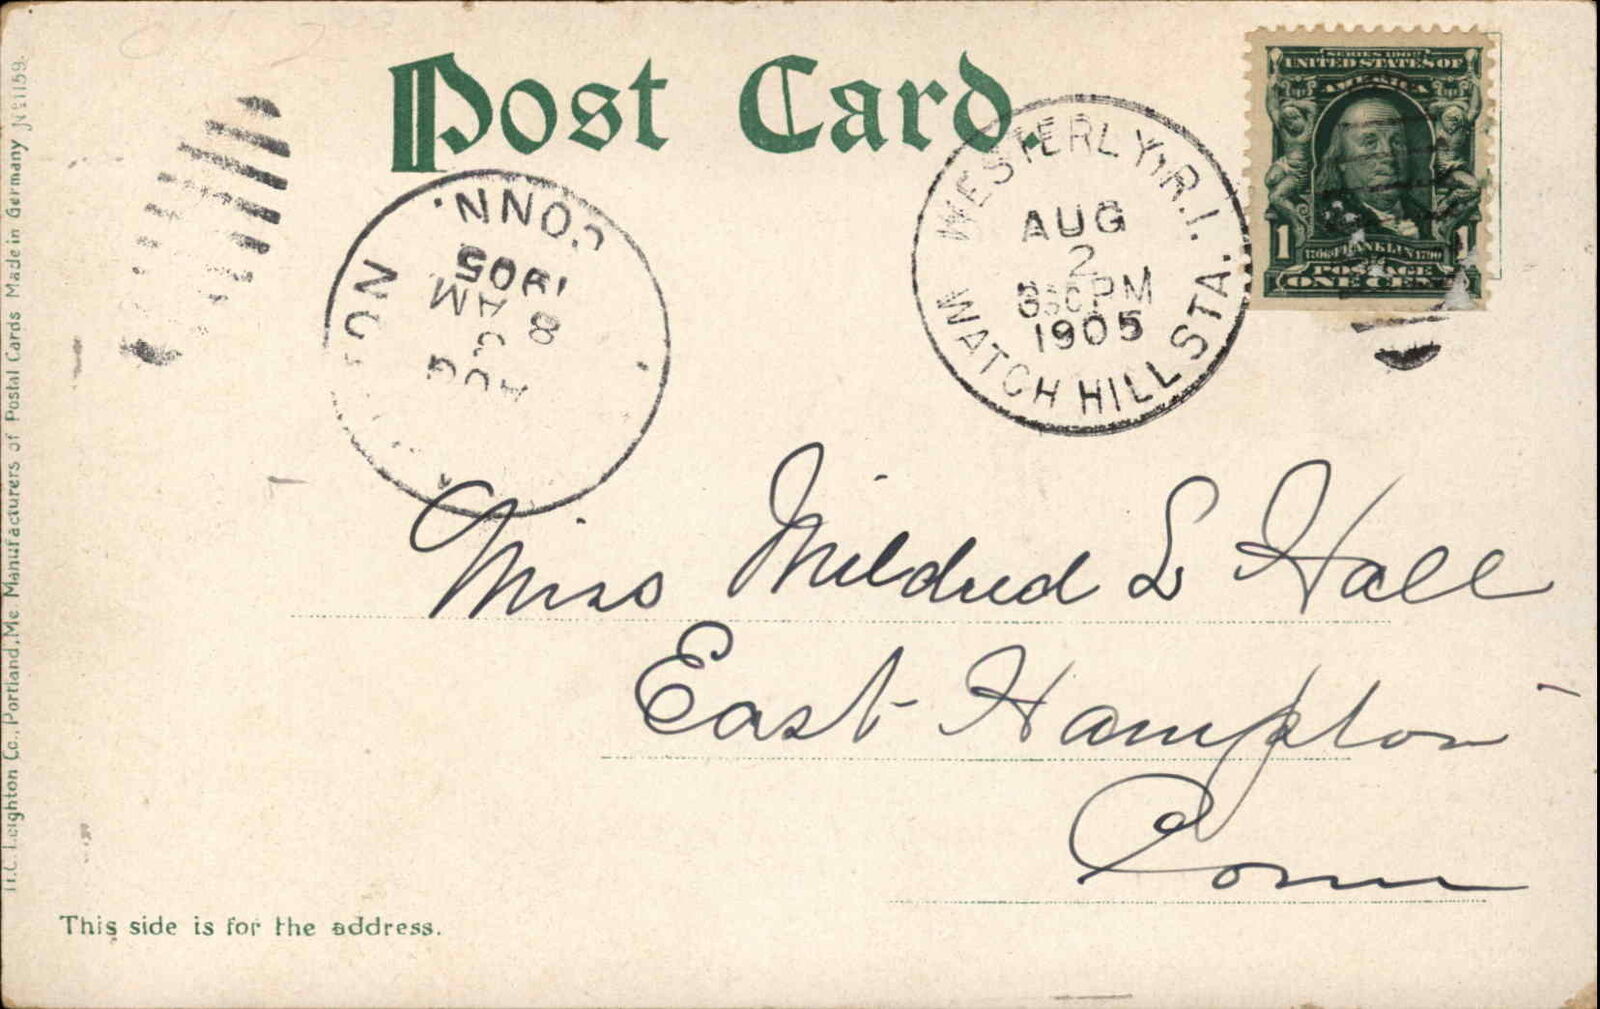 Post Card.
SERIES 1902
UNITED STATES OF
AMERICA
1706 FRANKLIN 1790
1 1
POSTAGE
ONE CENT
WESTERLY, R.I.
AUG
2
PM
1905
WATCH HILL STA.
CONN.
1905
8 AM
AUG
Miss Mildred L Hall
East Hampton
Conn
This side is for the address.
H.C. Leighton Co., Portland, Me Manufacturers of Postal Cards Made in Germany No 1159.